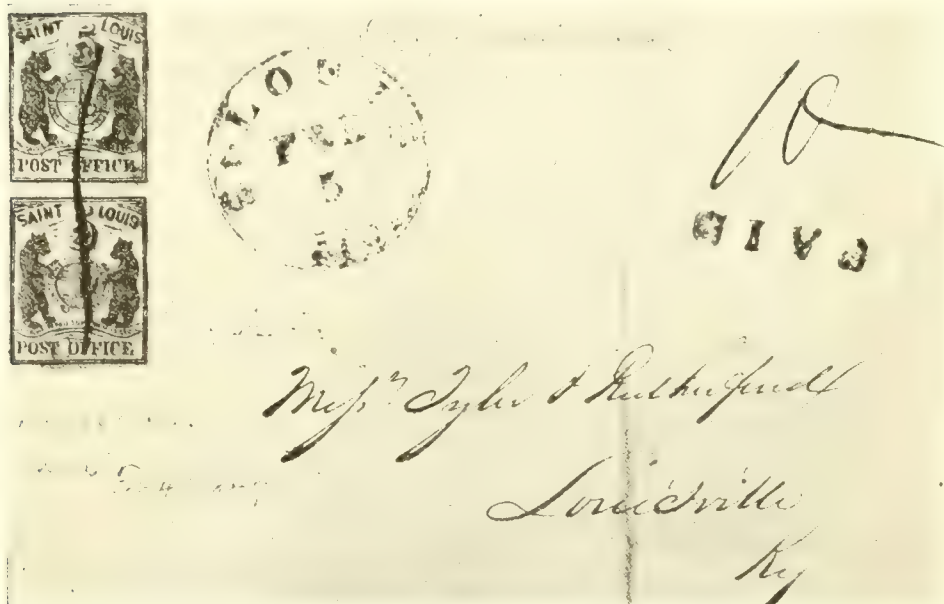 SAINT LOUIS
5
POST OFFICE
SAINT LOUIS
POST OFFICE
ST. LOUIS
FEB
5
10
PAID
Messrs Tyler & Rutherford
Louisville
Ky